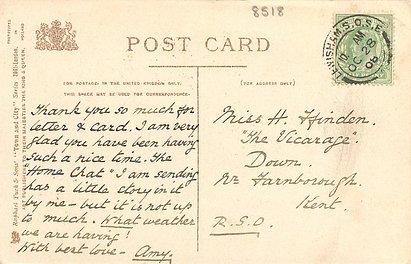 8518
POST CARD
FOR POSTAGE IN THE UNITED KINGDOM ONLY,
THIS SPACE MAY BE USED FOR CORRESPONDENCE.
(FOR ADDRESS ONLY)
Raphael Tuck & Sons' "Town and City" Series
TO THEIR MAJESTIES THE KING & QUEEN.
Thank you so much for
letter & card. I am very
glad you have been having
such a nice time. The
"Home Chat" I am sending
has a little story in it
by me - but it is not up
to much. What weather
we are having!
With best love - Amy.
Miss H.
"The Vicarage"
Down.
Nr Farnborough.
Kent.
R.S.O.
S.O.
OC 28